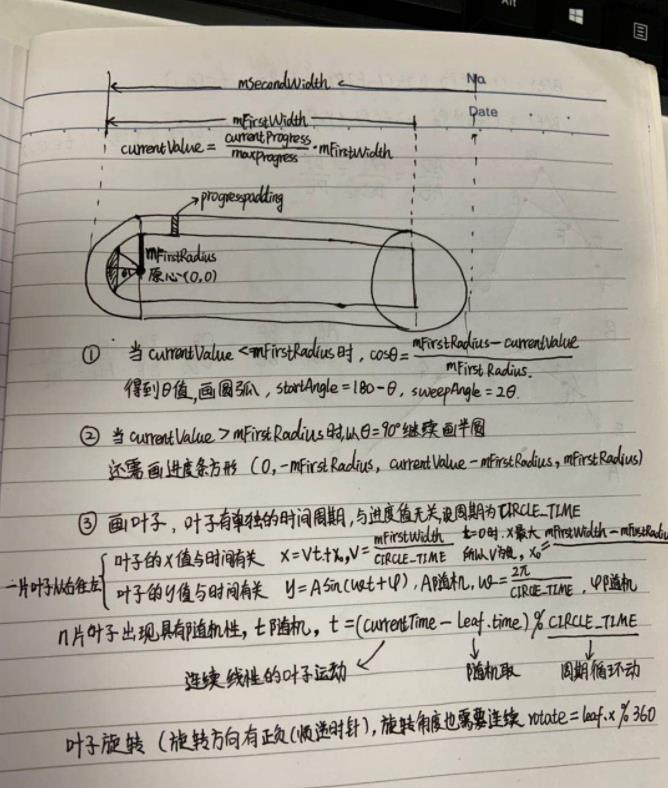 Alt
mSecondWidth
No.
Date
mFirstWidth
currentValue = currentProgress / maxprogress · mFirstWidth
progresspadding
mFirstRadius
原心(0,0)
① 当 currentValue < mFirstRadius 时, cosθ = mFirstRadius - currentValue / mFirst Radius.
得到θ值,画圆弧, startAngle = 180 - θ, sweepAngle = 2θ.
② 当 currentValue > mFirstRadius 时,从θ=90°继续画半圆
还需画进度条方形 (0, -mFirstRadius, currentValue - mFirstRadius, mFirstRadius)
③ 画叶子, 叶子有单独的时间周期, 与进度值无关,设周期为CIRCLE_TIME
一片叶子从右往左
叶子的X值与时间有关 x = Vt + x₀, V = mFirstWidth / CIRCLE_TIME t=0时. X最大 所以V为负, x₀ = mFirstWidth - mFirstRadiu
叶子的y值与时间有关 y = Asin(ωt + φ), A随机, ω = 2π / CIRCLE_TIME, φ随机
n片叶子出现具有随机性, t随机, t = (currentTime - leaf.time) % CIRCLE_TIME
连续线性的叶子运动 随机取 周期循环动
叶子旋转 (旋转方向有正负(顺逆时针), 旋转角度也需要连续 rotate = leaf.x % 360